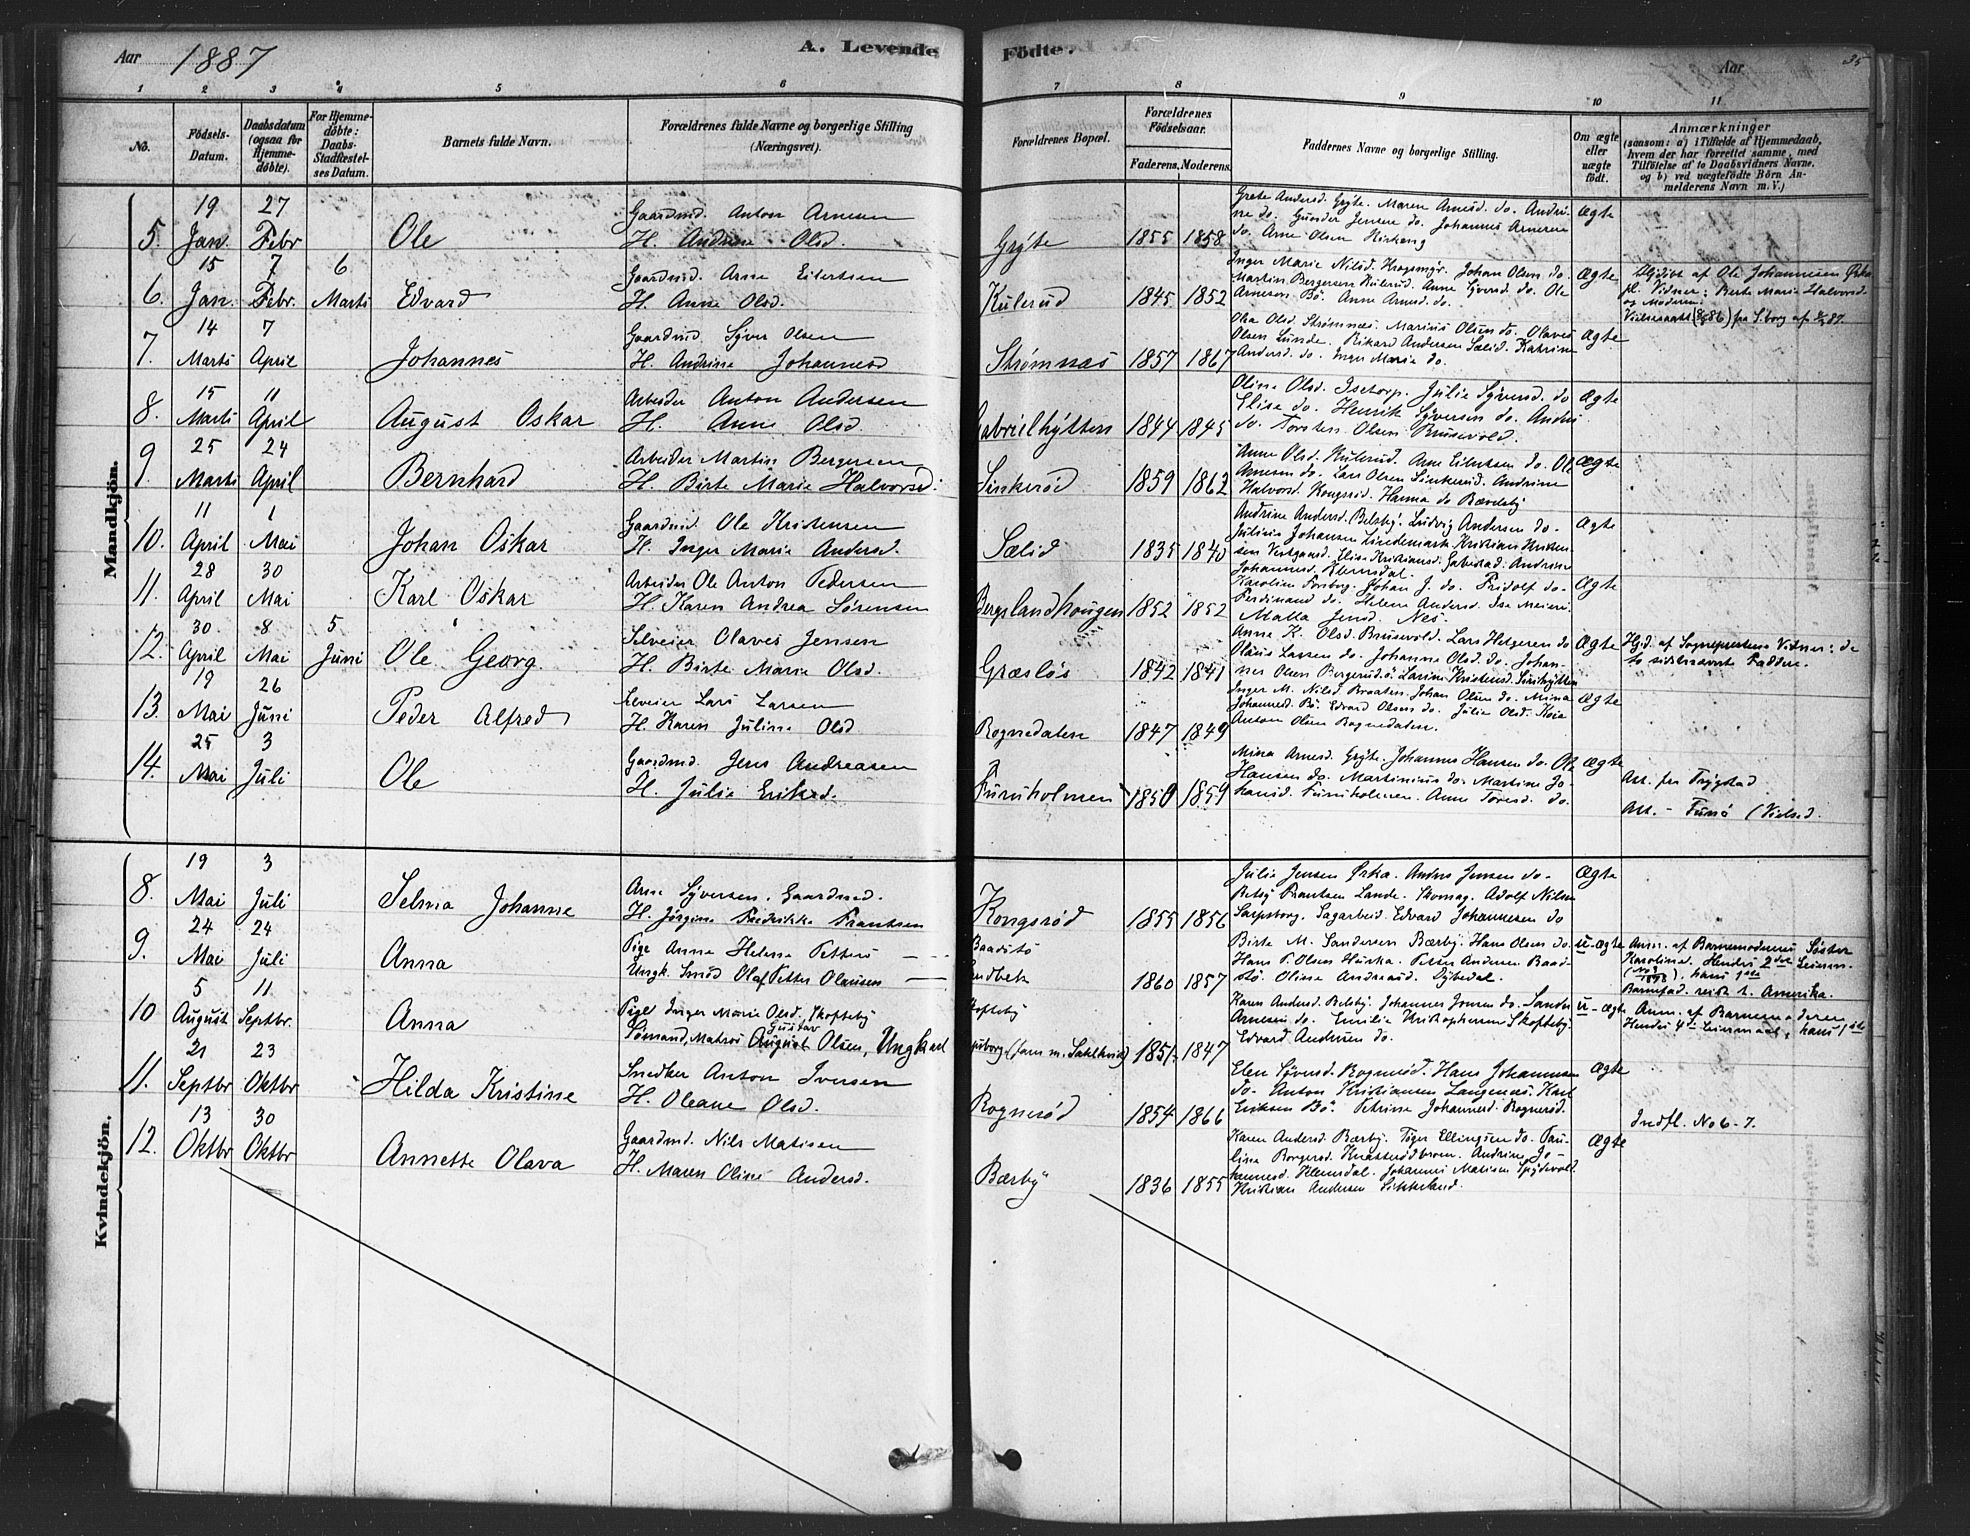 Aar 1887
A. Levende Födte.
Aar 35
1 2 3 4 5 6 7 8 9 10 11
No.
Födsels-Datum.
Daabsdatum (ogsaa for Hjemmedöbte).
For Hjemmedöbte: Daabs-Stadfæstelses Datum.
Barnets fulde Navn.
Forældrenes fulde Navne og borgerlige Stilling (Næringsvei).
Forældrenes Bopæl.
Forældrenes Födselsaar.
Faderens. Moderens.
Faddernes Navne og borgerlige Stilling.
Om ægte eller uægte födt.
Anmærkninger (saasom: a) i Tilfælde af Hjemmedaab, hvem der har forrettet samme, med Tilföielse af to Daabsvidners Navne, og b) ved uægtefödte Börn Anmelderens Navn m. V.)
Mandkjön.
5. 19 Jan. 27 Febr Ole
Gaardmd. Anton Arnesen
H. Andrine Olsd.
Gryte 1855 1858
Grete Andersd. Gryte. Maren Arnesd. do. Andri-
ne do. Gunder Jensen do. Johannes Arnesen
do. Arne Olsen Kirkeng
Ægte
6. 15 Jan. 7 Febr. 6 Marts Edvard
Gaardmd. Arne Eilertsen
H. Anne Olsd.
Kulerud 1845 1852
Inger Marie Nilsd. Krogsmyr. Johan Olsen do.
Martin Bergersen Kulerud. Anne Syversd. do. Ole
Arnesen Bö. Anne Arnesd. do.
Ægte
Hjdöbt af Ole Johannesen Ørka
fl. Vidner: Berte Marie Halvorsd.
og Moderen.
7. 14 Marts 7 April Johannes
Gaardmd Syver Olsen
H. Andrine Johannesd
Strømnæs 1857 1867
Olia Olsd. Strømnæs. Marius Olsen do. Olaves
Olsen Lunde. Rikard Andersen Sælid. Katrine
Andersd. do. Inger Marie do.
Ægte
8. 15 Marts 11 April August Oskar
Arbeider Anton Andersen
H. Anne Olsd
Gabrielhytten 1844 1845
Oline Olsd. Isetorp. Julie Syversd. do
Elise do. Henrik Syversen do. Andrs
do. Torsten Olsen Brusevold.
Ægte
9. 25 Marts 24 April Bernhard
Arbeider Martin Bergersen
H. Birte Marie Halvorsd.
Sinkerød 1859 1862
Anne Olsd. Kulerud. Arne Eilertsen do. Ole
Arnesen do. Lars Olsen Sinkerud. Andrine
Halvorsd. Kongsrød. Hanna do Bærdeby
Ægte
10. 11 April 1 Mai Johan Oskar
Gaardmd. Ole Kristensen
H. Inger Marie Andersd.
Sælid 1835 1840
Andrine Andersd. Belsby. Ludvig Andersen do.
Juliane Johansen Lindemark. Kristian Kristen-
sen Vestgaard. Elise Kristiansd. Andrine
Johannesd. Klemsdal.
Ægte
11. 28 April 30 Mai Karl Oskar
Arbeider Ole Anton Pedersen
H. Karen Andrea Sørensen
Bergslandhougen 1852 1852
Karoline Forsberg. Johan J. do. Fridolf do.
Ferdinand do. Helene Andersd. Ise Meieri.
Malla Jensd Nes.
Ægte
12. 30 April 8 Mai 5 Juni Ole Georg
Selveier Olaves Jensen
H. Birte Marie Olsd.
Græsløs 1842 1841
Anna K. Olsd. Brusevold. Lars Helgesen do
Olava Larsen do. Johanne Olsd. do. Johan-
nes Olsen Bergerud. Larine Kristensd.
Ægte
Hjd. af Sognepresten. Vidner: de
to sidstnævnte Faddere.
13. 19 Mai 26 Juni Peder Alfred
Selveier Lars Larsen
H. Karen Juline Olsd.
Rognedalen 1847 1849
Inger M. Nilsd. Braaten. Johan Olsen do. Mina
Johannesd. Bö. Edvard Olsen do. Julie Olsd.
Anton Olsen Rognedalen.
Ægte
14. 25 Mai 3 Juli Ole
Gaardmd. Jens Andreasen
H. Julie Eriksd.
Furuholmen 1850 1859
Mina Arnesd. Gryte. Johannes Hansen do. Ole
Hansen do. Martinius do. Martine Jo-
hansd. Furuholmen. Anne Toresd. do.
Ægte
Att. fra Trygstad
Att. - Tunö (Vielsed.
Kvindekjön.
8. 19 Mai 3 Juli Selma Johanne
Arne Syversen. Gaardmd.
H. Jørgine Fredrikke Frantsen
Kongsrød 1855 1856
Julie Jensen Ørka. Anders Jensen do.
Betsy Frantsen Lande. Skomag. Adolf Nilsen
Sarpsborg. Sagarbeid. Edvard Johannesen do
Ægte
9. 24 Mai 24 Juli Anna
Pige Anne Helene Petters
Ungk. Smed Olaf Petter Olausen
1860 1857
Birte M. Sandersen Bærby. Hans Olsen do.
Hans P. Olsen Hurka. Petter Andersen Baad-
stö. Oline Andreasd.
u-ægte
Anm. af Barnemoderens Søster
Karoline. Hendes 2det Leierm.
hans 1ste
Barnefad. reist t. Amerika.
10 5 August 11 Septbr. Anna
Pige Inger Marie Olsd. Skofteby
Sømand, Matros August Gustav Olsen, Ungkarl
1851 1847
Karen Andersd. Belsby. Johannes Jonsen do. Sander
Arnesen do. Emilie Kristophersen Skofteby.
Edvard Andersen do.
u-ægte
Anm. af Barnemoderen
Hendes 4de Leiermaal, hans 1ste
11. 21 Septbr 23 Oktbr Hilda Kristine
Snedker Anton Iversen
H. Oleane Olsd.
Rognerød 1854 1866
Elen Syversd. Rognerød. Hans Johannesen
do. Anton Kristiansen Langenes. Karl
Eriksen Bö. Petrine Johannesd. Rognerød.
Ægte
Indfl. No 6-7.
12. 13 Oktbr 30 Oktbr Annette Olava
Gaardmd. Nils Matisen
H. Maren Oline Andersd.
Bærby 1836 1855
Karen Andersd. Bærby. Tiger Ellingsen do. Pau-
line Borgersd. Knatterødbroen. Andrine Jo-
hannesd. Klemsdal. Johannes Matisen Spydevold.
Kristian Andersen Sikkeland.
Ægte